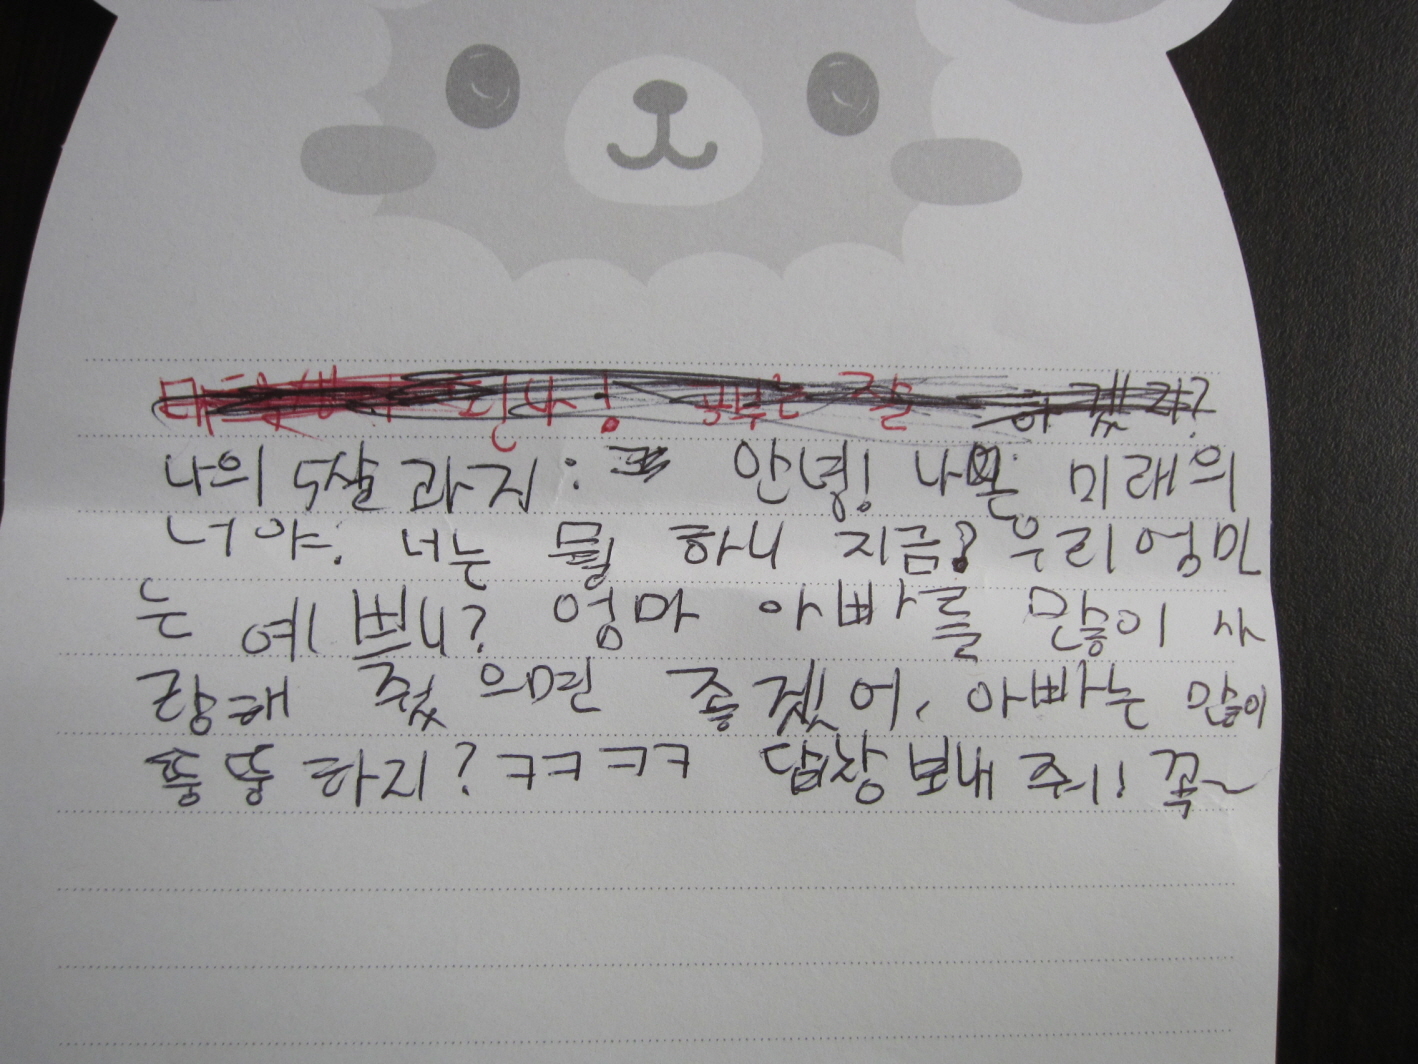 잘
나의 5살 과지: 안녕! 나는 미래의
너야. 너는 뭘 하니 지금? 우리 엄마
는 예쁘니? 엄마 아빠를 많이 사
랑해 줬으면 좋겠어, 아빠는 많이
뚱뚱 하지? ㅋㅋㅋㅋ 답장 보내 줘! 꼭~